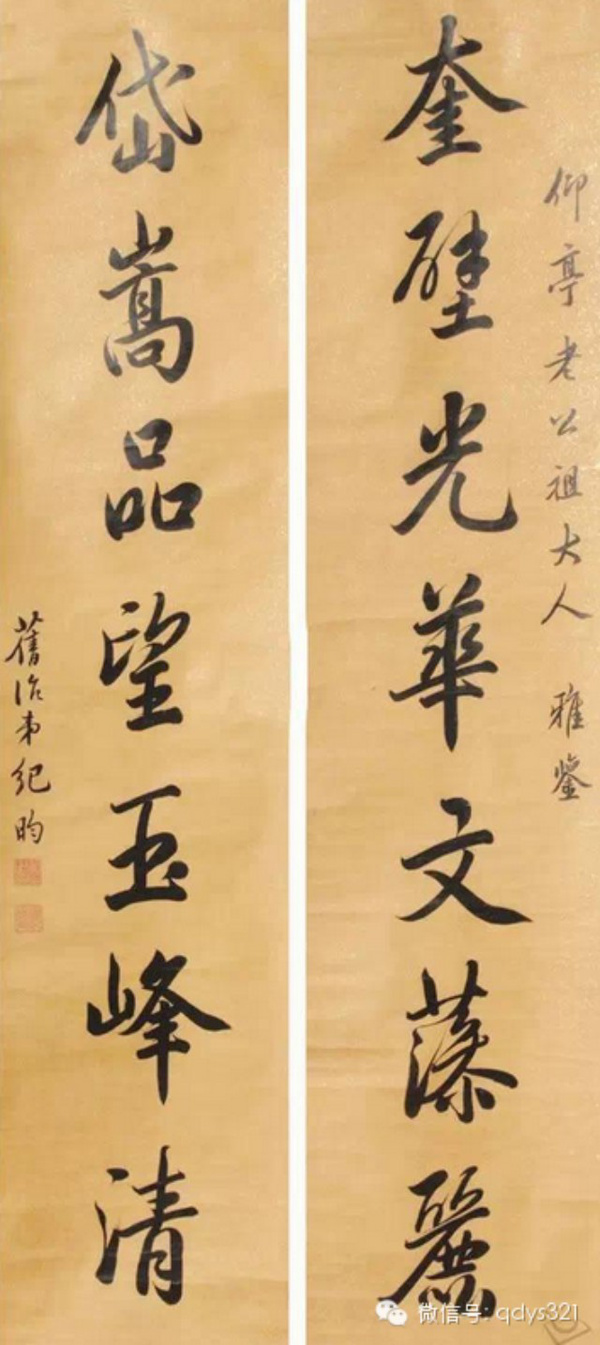 仰亭老公祖大人 雅鑒
奎壁光華文藻麗
岱嵩品望玉峰清
舊治弟紀昀
微信号: qdys321